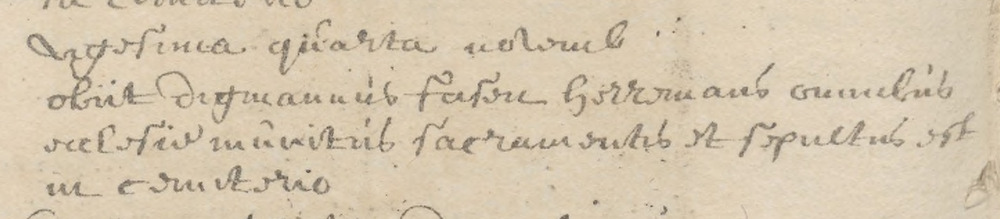 in cemiterio
vigesima quarta novemb
obiit digmannus fasen herremans omnibus
ecclesie munitus sacramentis et sepultus est
in cemiterio